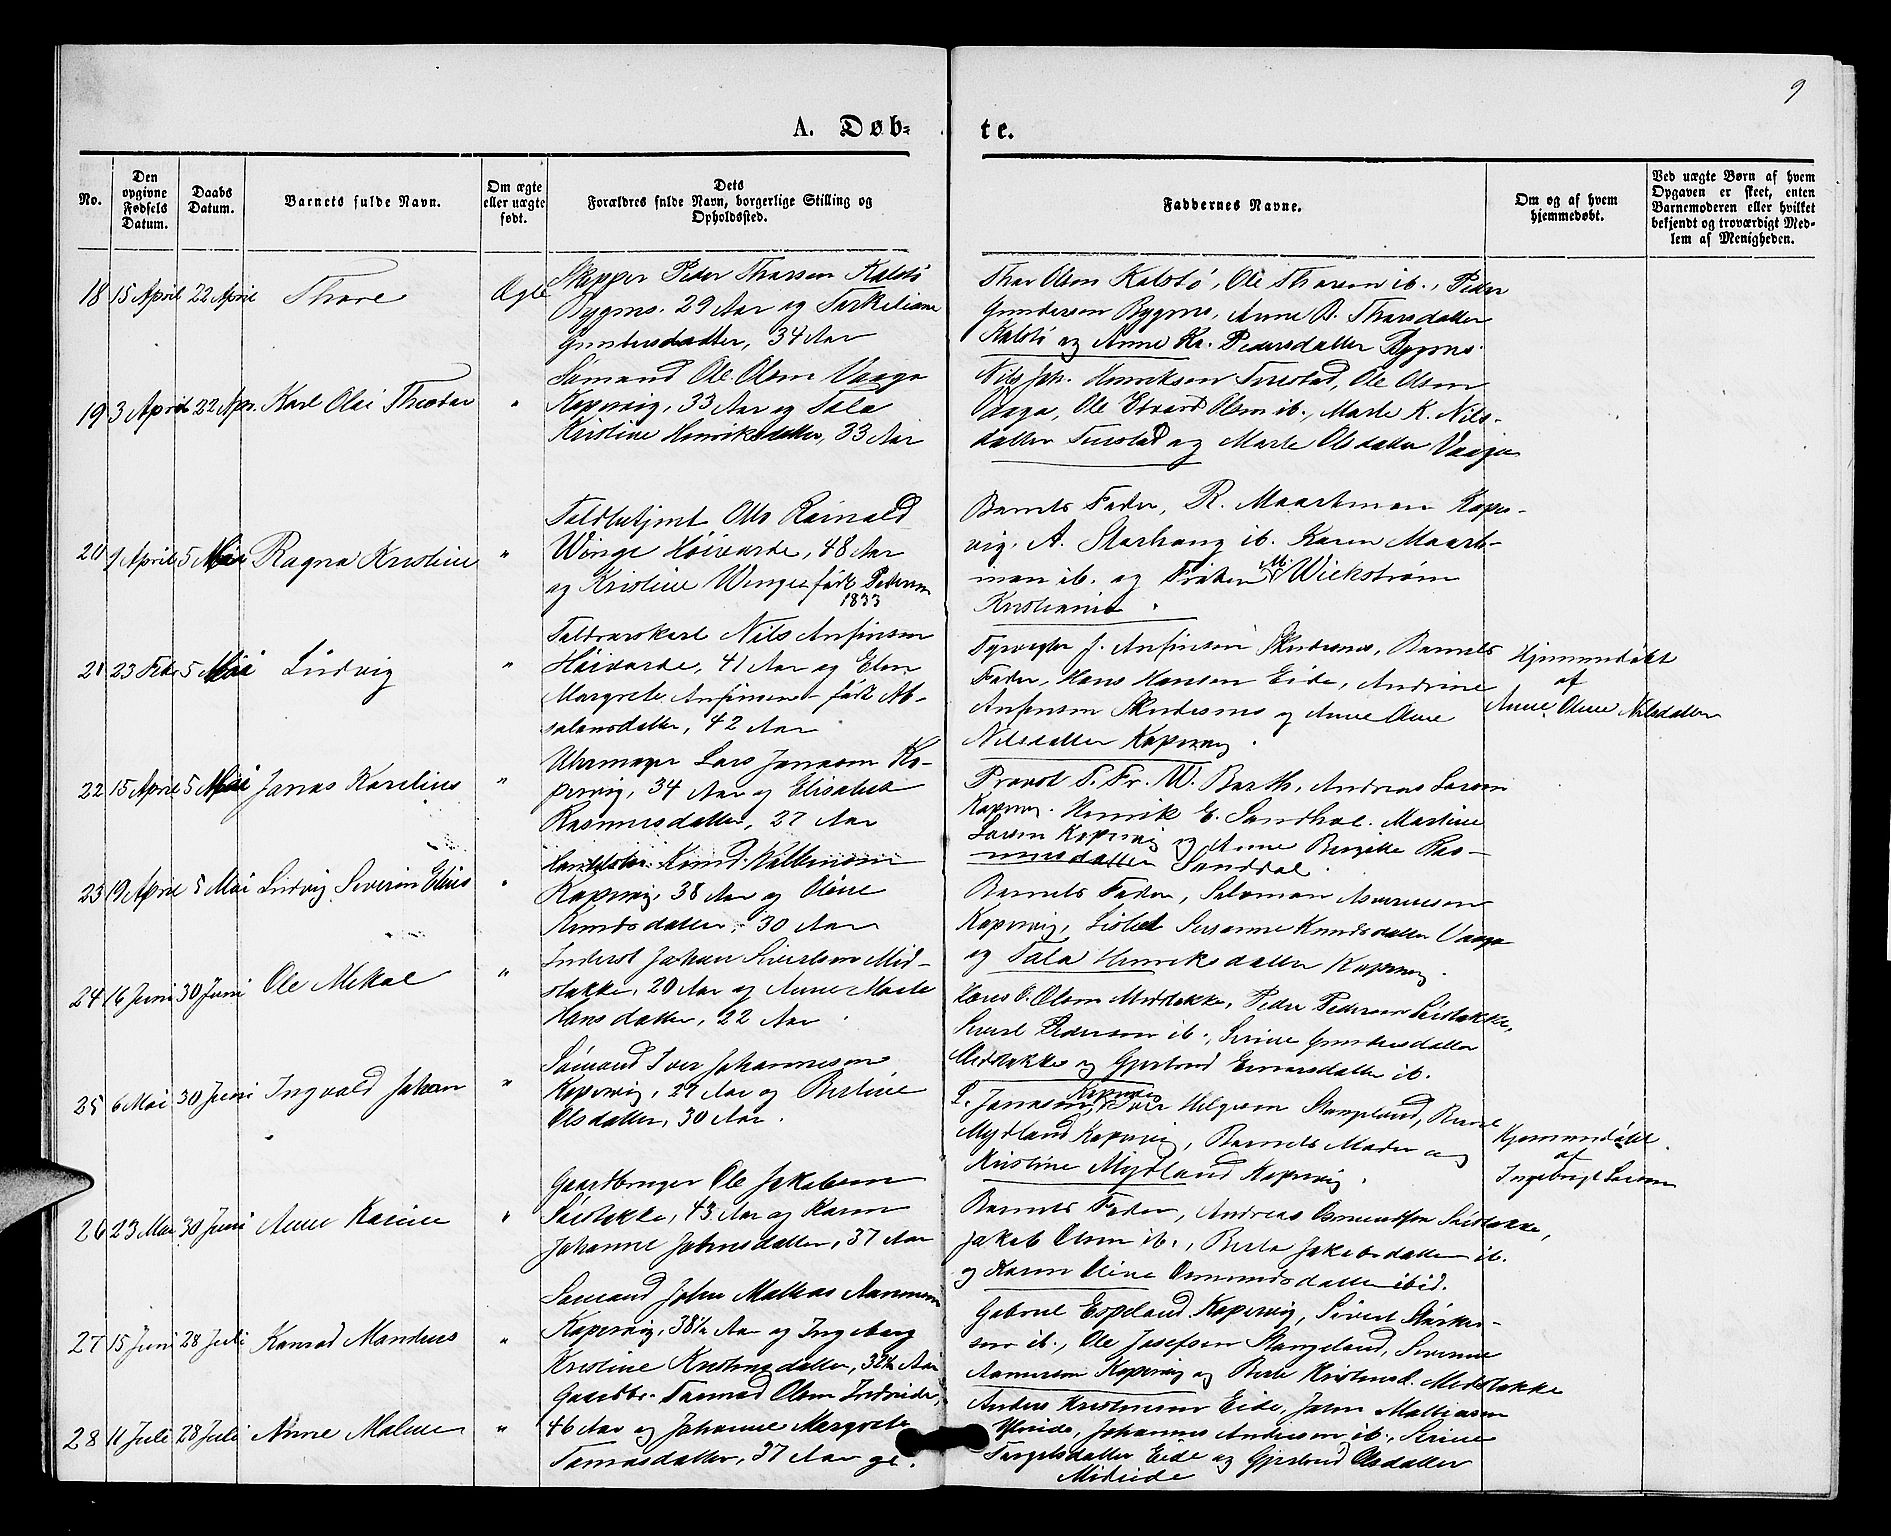 9
A. Døb-
te.
No.
Den opgivne Fødsels Datum.
Daabs Datum.
Barnets fulde Navn.
Om ægte eller uægte født.
Dets Forældres fulde Navn, borgerlige Stilling og Opholdssted.
Faddernes Navne.
Om og af hvem hjemmedøbt.
Ved uægte Børn af hvem Opgaven er skeet, enten Barnemoderen eller hvilket bekjendt og troværdigt Medlem af Menigheden.
18 15 April 22 April Thore Ægte
Skipper Peder Thorsen Kalstø
Bygnes. 29 Aar og Torkeliane
Gundersdatter, 34 Aar
Thor Olsen Kalstø, Ole Thorsen ib., Peder
Gundersen Bygnes, Anne B. Thorsdatter
Kalstø og Anne Kr. Pedersdatter Bygnes.
19 3 April 22 Apr. Karl Olai Theodor "
Sömand Ole Olsen Vaaga
Kopervig, 33 Aar og Tala
Kristine Henriksdatter, 33 Aar
Nils Joh. Henriksen Tuestad, Ole Olsen
Vaaga, Ole Edvard Olsen ib., Marte K. Nils-
datter Tuestad og Marte Olsdatter Vaaga
20 1 April 5 Mai Ragna Kristine "
Toldbetjent Otto Reinald
Winge Høievarde, 48 Aar
og Kristine Winge født Pedersen
1833
Barnets Fader, R. Maartman Koper-
vig, A. Storhaug ib. Karen Maart-
man ib. og Frøken M. Wickstrøm
Kristiania.
21 23 Febr 5 Mai Ludvig "
Toldroerskarl Nils Anfinsen
Høievarde, 41 Aar og Elen
Margrete Anfinsen født Ab-
salonsdatter, 42 Aar
Fyrvogter J. Anfinsen Skudesnes, Barnets
Fader, Hans Hansen Eide, Andrine
Anfinsen Skudesnes og Anne Oline
Nilsdatter Kopervig.
Hjemmedøbt
af
Anne Oline Nilsdatter
22 15 April 5 Mai Jonas Karelius "
Uhrmager Lars Jonason Ko-
pervig, 34 Aar og Elisabet
Rasmusdatter, 27 Aar
Provst T. Fr. W. Barth, Andreas Larsen
Kopervig. Henrik E. Sandhol. Martine
Larsen Kopervig og Anne Birgitte Ras-
musdatter Sanddal.
23 19 April 5 Mai Ludvig Severin Elius "
Knud
Kopervig, 38 Aar og Oline
Knudsdatter, 30 Aar
Barnets Fader, Salomon
Kopervig, Lisbet Susanne Knudsdatter Vaaga
og Tala Henriksdatter Kopervig.
24 16 Juni 30 Juni Ole Mikal "
Inderst Johan Sivertsen Mid-
stokke, 20 Aar og Anne Marte
Hansdatter, 22 Aar.
Hans O. Olsen Midstokke, Peder Pedersen Søistokke,
Sivert Pedersen ib., Serine Gundersdatter
Midstokke og Gjertrud Einarsdatter ib.
25 6 Mai 30 Juni Ingvald Johan "
Sömand Iver Johannesen
Kopervig, 29 Aar og Bertine
Olsdatter, 30 Aar.
L. Jonason Kopervig, Iver Helgesen Stangeland,
Mydland Kopervig, Barnets Moder og
Kristine Mydland Kopervig.
Hjemmedøbt.
af
Ingebrigt Larsen
26 23 Mai 30 Juni Anne Karine "
Gaardbruger Ole Jakobsen
Søistokke, 43 Aar og Karen
Johanne Johnsdatter, 37 Aar
Barnets Fader, Andreas Osmundsen Søistokke,
Jakob Olsen ib., Berta Jakobsdatter ib.
og Karen Oline Osmundsdatter ibid.
27 15 Juni 28 Juli Konrad Mandius "
Sömand John Matias Aanensen
Kopervig, 38½ Aar og Ingeborg
Kristine Kristensdatter, 32½ Aar
Gabriel Espeland Kopervig, Sivert Størker-
sen ib., Ole Josefsen Stangeland, Severine
Aanensen Kopervig og Berte Kristensd. Midstokke
28 11 Juli 28 Juli Anne Malene "
Gaardbr. Tormod Olsen Indreeide,
46 Aar og Johanne Margrete
Tomasdatter, 37 Aar gl.
Anders Kristensen Eide, John Mattiasen
Ytreide, Johannes Andersen ib., Serine
Torgelsdatter Eide og Gjertrud Olsdatter
Mideide